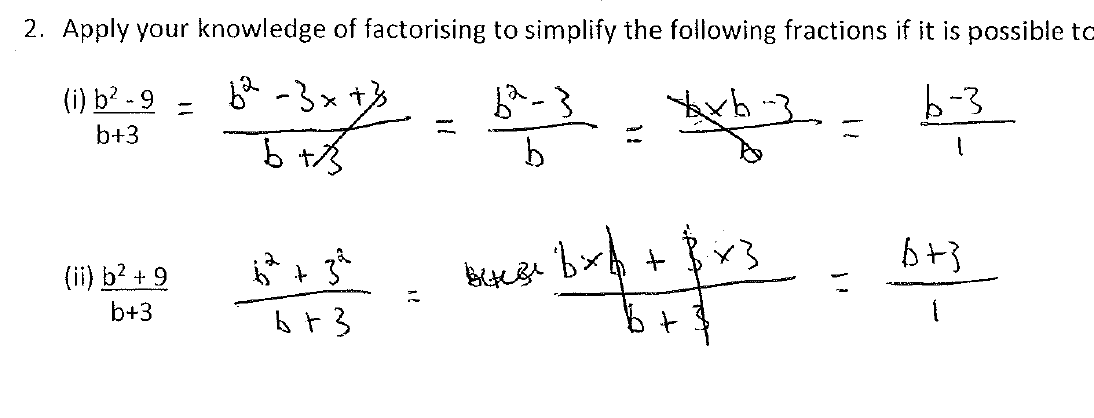 2. Apply your knowledge of factorising to simplify the following fractions if it is possible to
(i) b² - 9 / b+3 = b² - 3 × +3 / b + 3 = b² - 3 / b = b × b - 3 / b = b - 3 / 1
(ii) b² + 9 / b+3 b² + 3² / b + 3 = b × b + 3 × 3 / b + 3 = b + 3 / 1